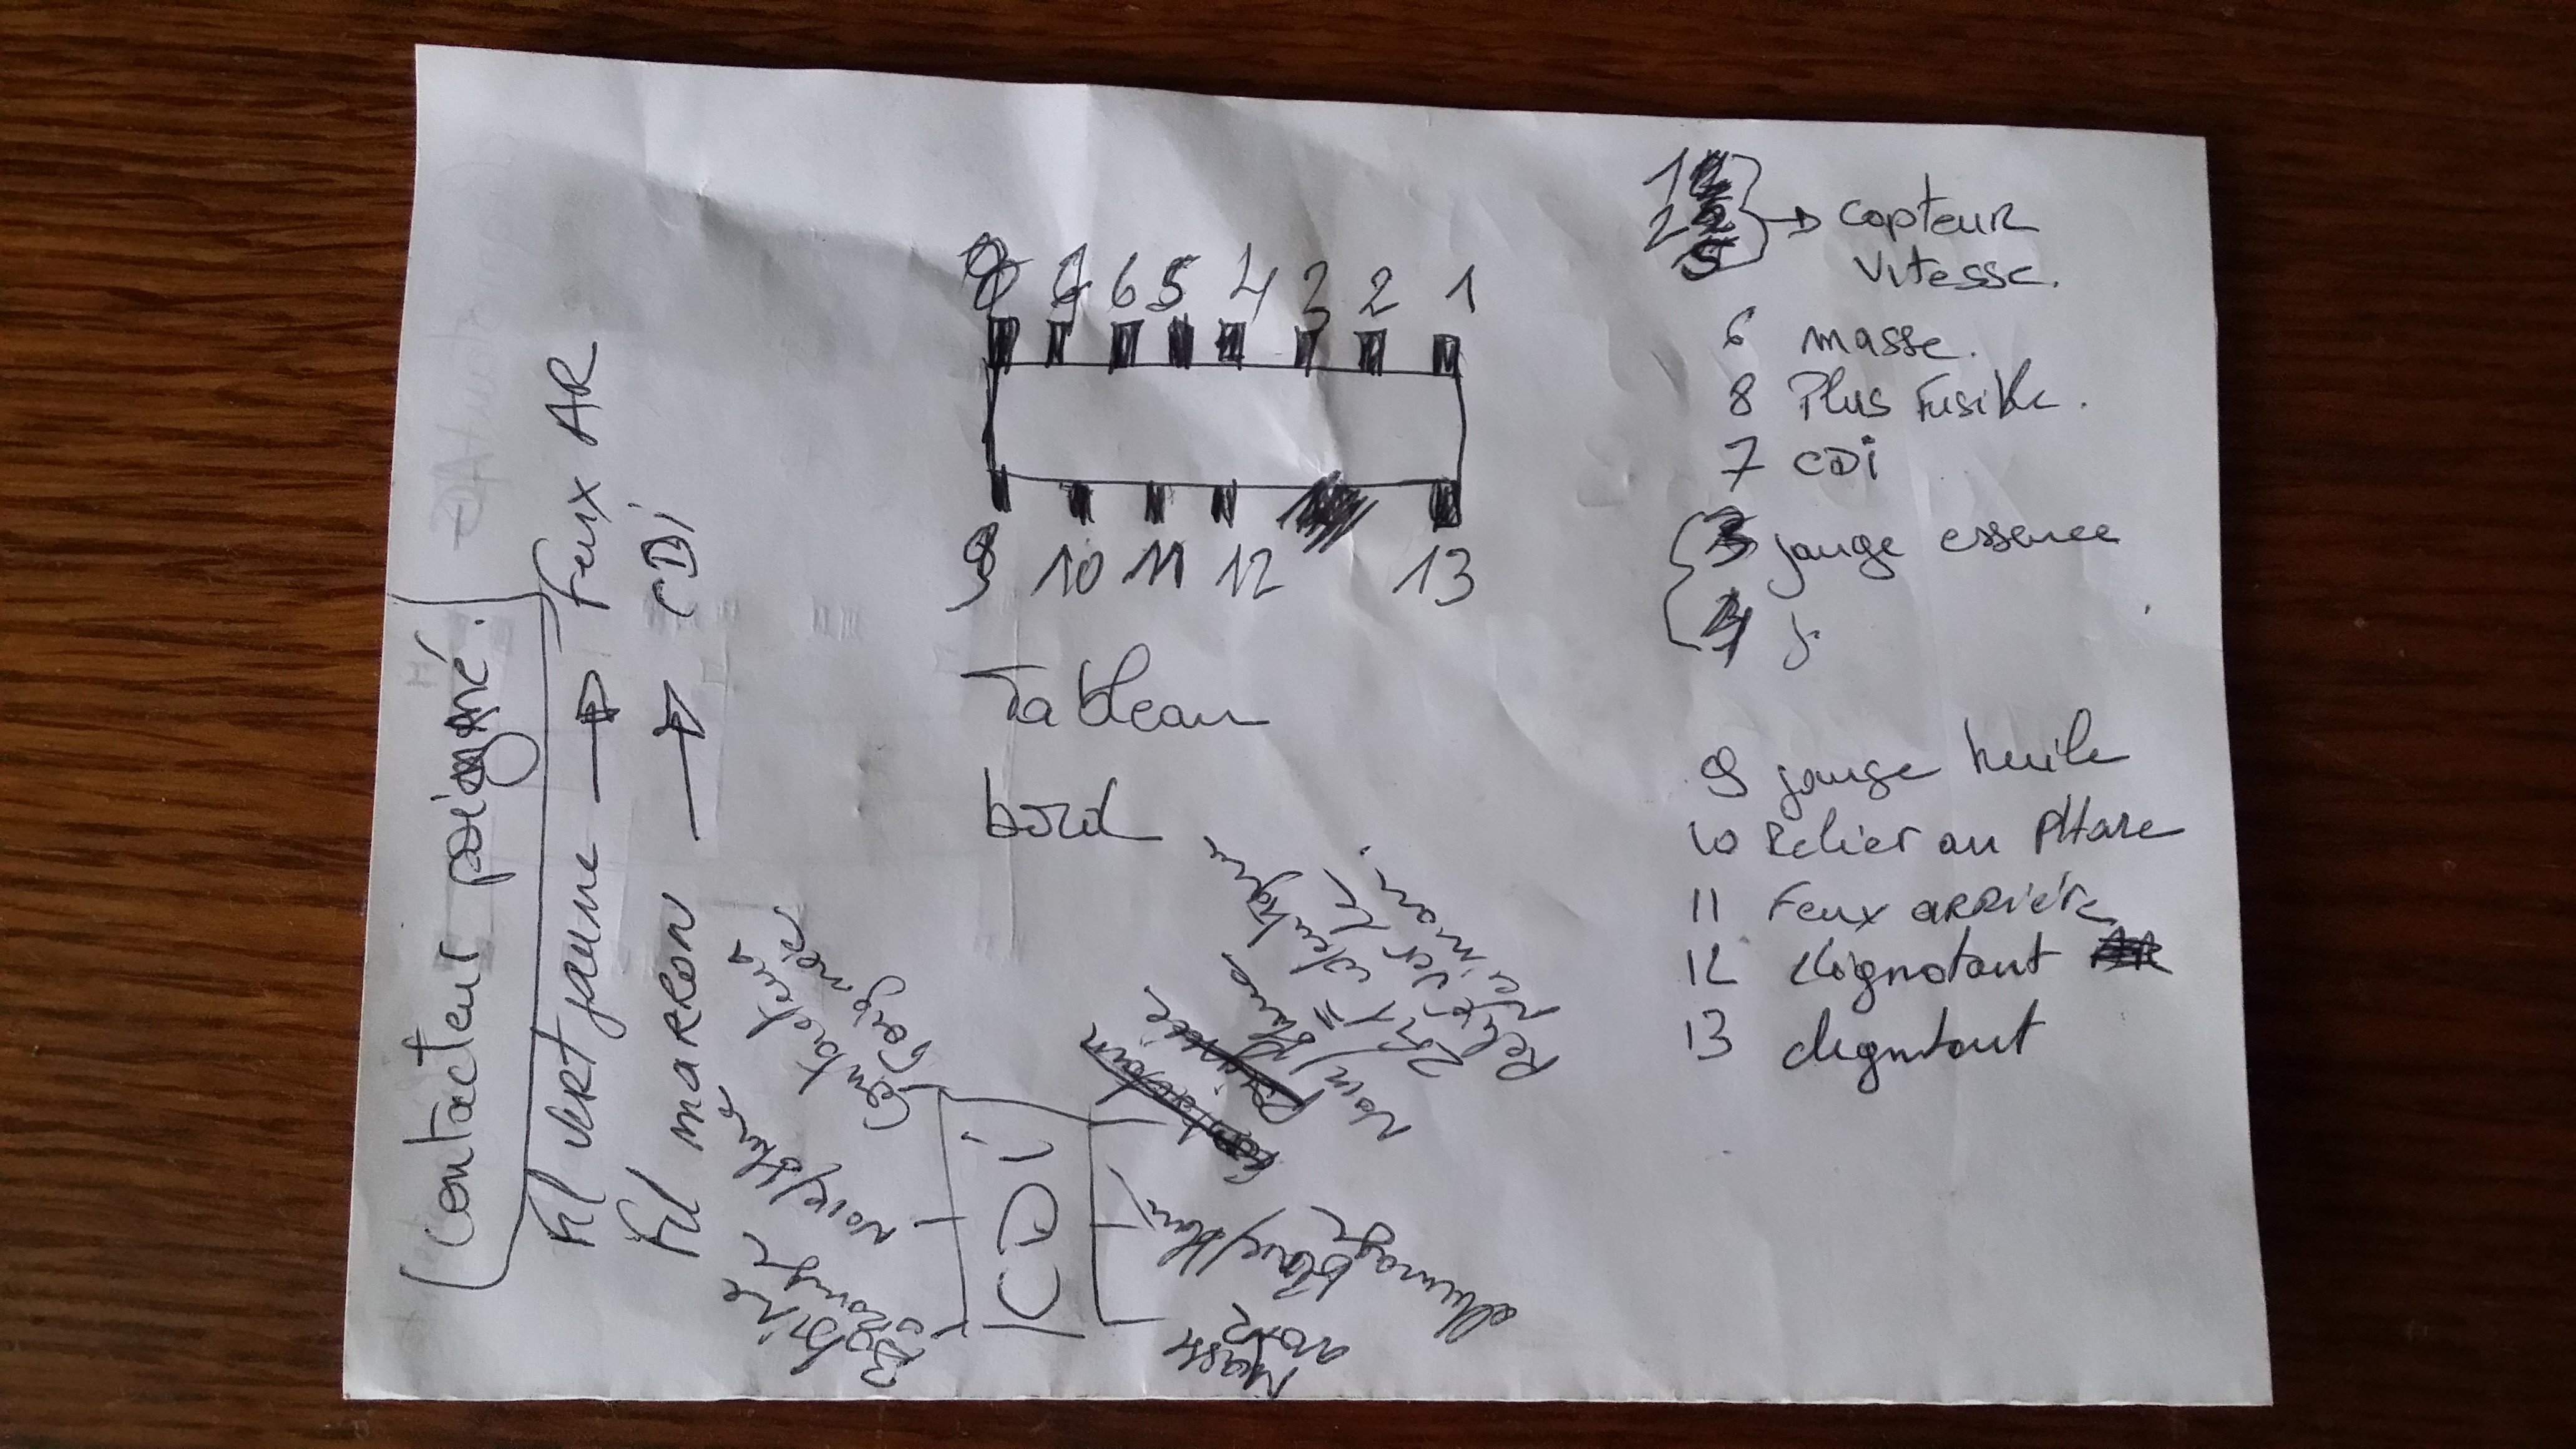 8 7 6 5 4 3 2 1
9 10 11 12 13
Tableau
bord
1
2
5
→ Capteur
Vitesse.
6 masse.
8 Plus Fusible.
7 CDi
3 jauge essence
4 j
9 jauge huile
10 Relier au PHare
11 Feux aRRiére
12 clignotant
13 clignotant
Contacteur poigné.
Fil veRt jaune → Feux AR
Fil maRRon → CDi
CDi
Bobine
orange
Noire/blanc
Contacteur
Poignée
Masse
noir
blanc/
allumage
Noir/
Relier